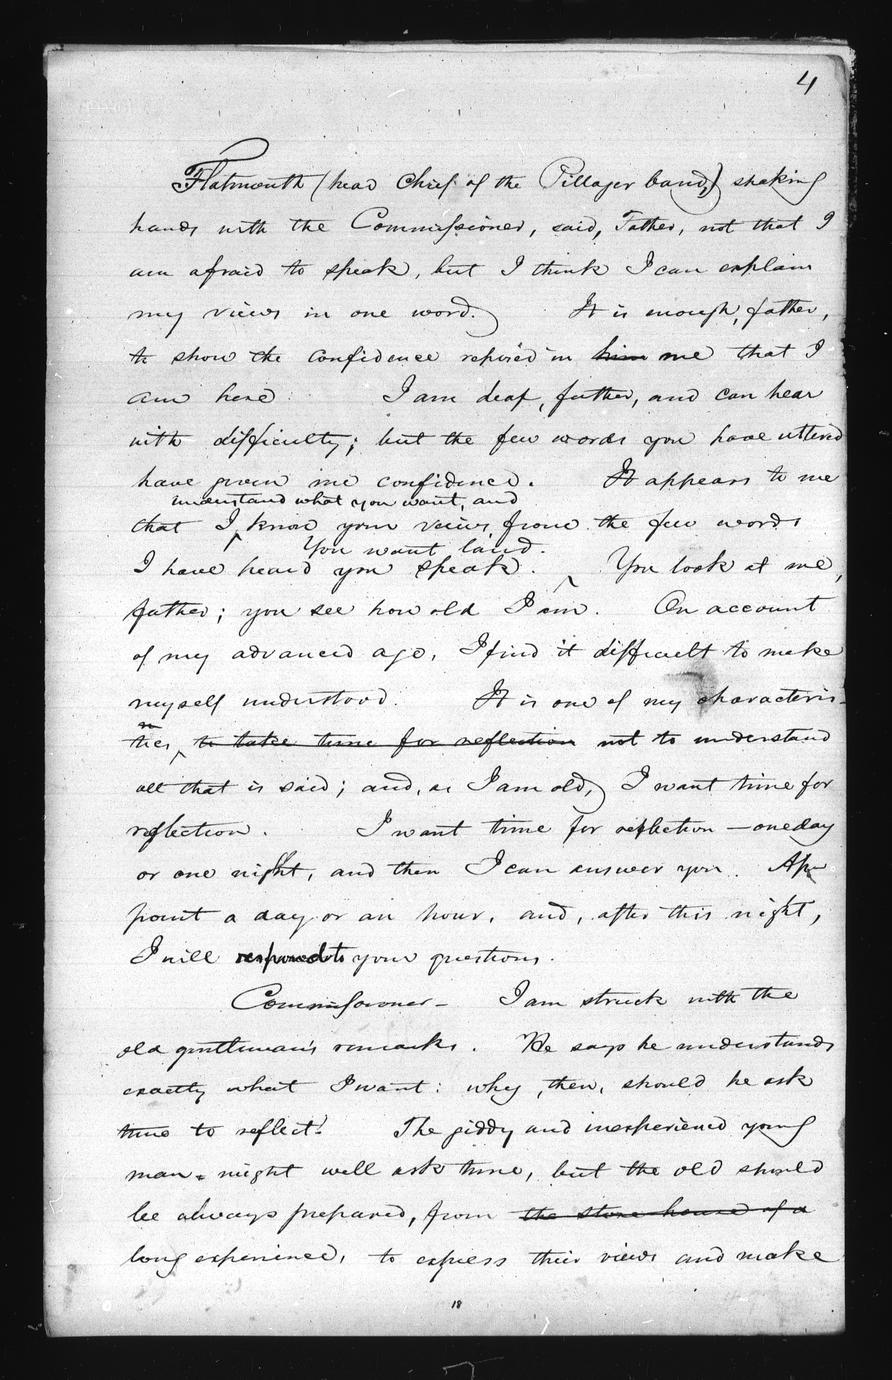 4
Flatmouth (head Chief of the Pillager band,) shaking
hands with the Commissioner, said, Father, not that I
am afraid to speak, but I think I can explain
my views in one word. It is enough, father,
to show the confidence reposed in him me that I
am here. I am deaf, father, and can hear
with difficulty; but the few words you have uttered
have given me confidence. It appears to me
understand what you want, and
that I ‸ know your views from the few words
You want land.
I have heard you speak. ‸ You look at me,
father; you see how old I am. On account
of my advanced age, I find it difficult to make
myself understood. It is one of my characteris-
tics ‸ to take time for reflection not to understand
all that is said; and, as I am old, I want time for
reflection. I want time for reflection — one day
or one night, and then I can answer you. Ap-
point a day or an hour, and, after this night,
I will respond to your questions.
Commissioner — I am struck with the
old gentleman's remarks. He says he understands
exactly what I want: why, then, should he ask
time to reflect? The giddy and inexperienced young
man might well ask time, but the old should
be always prepared, from the store house of a
long experience, to express their views and make
18